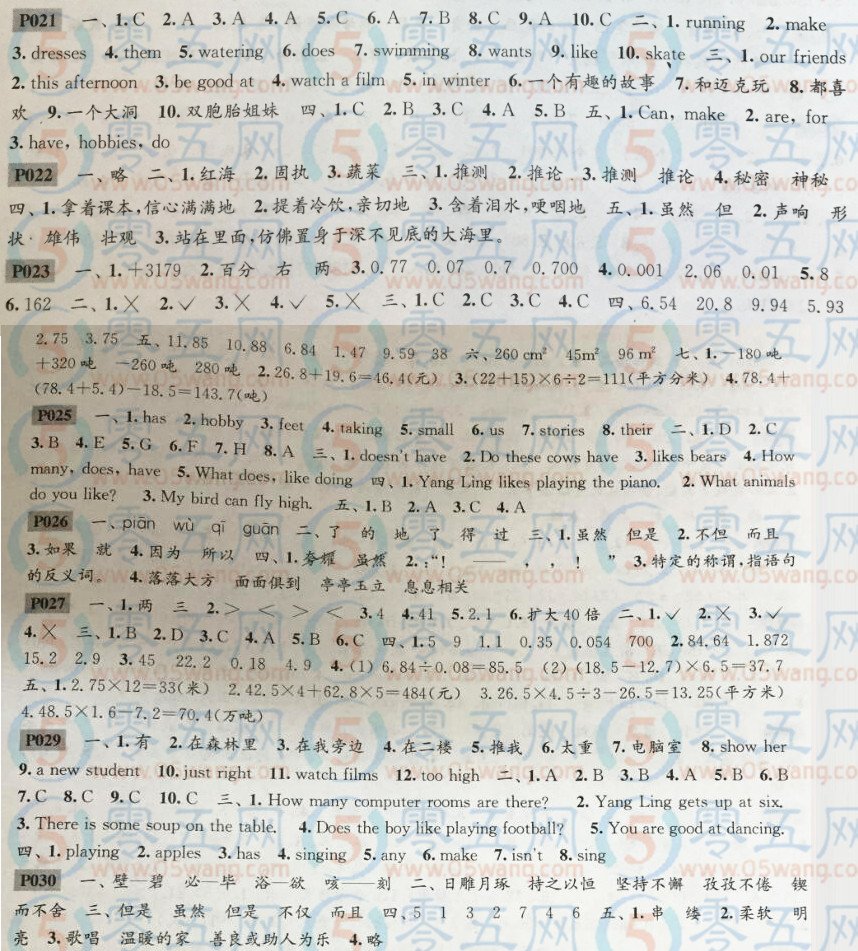 P021 一、1. C 2. A 3. A 4. A 5. C 6. A 7. B 8. C 9. A 10. C 二、1. running 2. make
3. dresses 4. them 5. watering 6. does 7. swimming 8. wants 9. like 10. skate 三、1. our friends
2. this afternoon 3. be good at 4. watch a film 5. in winter 6. 一个有趣的故事 7. 和迈克玩 8. 都喜
欢 9. 一个大洞 10. 双胞胎姐妹 四、1. C 2. B 3. C 4. A 5. B 五、1. Can, make 2. are, for
3. have, hobbies, do
P022 一、略 二、1. 红海 2. 固执 3. 蔬菜 三、1. 推测 2. 推论 3. 推测 推论 4. 秘密 神秘
四、1. 拿着课本,信心满满地 2. 提着冷饮,亲切地 3. 含着泪水,哽咽地 五、1. 虽然 但 2. 声响 形
状 雄伟 壮观 3. 站在里面,仿佛置身于深不见底的大海里。
P023 一、1. +3179 2. 百分 右 两 3. 0.77 0.07 0.7 0.700 4. 0.001 2.06 0.01 5. 8
6. 162 二、1. ✕ 2. ✓ 3. ✕ 4. ✓ 5. ✕ 三、1. C 2. C 3. C 4. C 四、6.54 20.8 9.94 5.93
2.75 3.75 五、11.85 10.88 6.84 1.47 9.59 38 六、260 cm² 45m² 96 m² 七、1. -180 吨
+320 吨 -260 吨 280 吨 2. 26.8+19.6=46.4(元) 3. (22+15)×6÷2=111(平方分米) 4. 78.4+
(78.4+5.4)-18.5=143.7(吨)
P025 一、1. has 2. hobby 3. feet 4. taking 5. small 6. us 7. stories 8. their 二、1. D 2. C
3. B 4. E 5. G 6. F 7. H 8. A 三、1. doesn't have 2. Do these cows have 3. likes bears 4. How
many, does, have 5. What does, like doing 四、1. Yang Ling likes playing the piano. 2. What animals
do you like? 3. My bird can fly high. 五、1. B 2. A 3. C 4. A
P026 一、piān wù qī guān 二、了 的 地 了 得 过 三、1. 虽然 但是 2. 不但 而且
3. 如果 就 4. 因为 所以 四、1. 夸耀 虽然 2. :“! —— , , ! ” 3. 特定的称谓,指语句
的反义词。 4. 落落大方 面面俱到 亭亭玉立 息息相关
P027 一、1. 两 三 2. > < > < 3. 4 4. 41 5. 2.1 6. 扩大40倍 二、1. ✓ 2. ✕ 3. ✓
4. ✕ 三、1. B 2. D 3. C 4. A 5. B 6. C 四、1. 5 9 1.1 0.35 0.054 700 2. 84.64 1.872
15.2 2.9 3. 45 22.2 0.18 4.9 4. (1) 6.84÷0.08=85.5 (2) (18.5-12.7)×6.5=37.7
五、1. 2.75×12=33(米) 2. 42.5×4+62.8×5=484(元) 3. 26.5×4.5÷3-26.5=13.25(平方米)
4. 48.5×1.6-7.2=70.4(万吨)
P029 一、1. 有 2. 在森林里 3. 在我旁边 4. 在二楼 5. 推我 6. 太重 7. 电脑室 8. show her
9. a new student 10. just right 11. watch films 12. too high 二、1. A 2. B 3. B 4. A 5. B 6. B
7. C 8. C 9. C 10. C 三、1. How many computer rooms are there? 2. Yang Ling gets up at six.
3. There is some soup on the table. 4. Does the boy like playing football? 5. You are good at dancing.
四、1. playing 2. apples 3. has 4. singing 5. any 6. make 7. isn't 8. sing
P030 一、壁—碧 必—毕 浴—欲 咳——刻 二、日雕月琢 持之以恒 坚持不懈 孜孜不倦 锲
而不舍 三、但是 虽然 但是 不仅 而且 四、5 1 3 2 7 4 6 五、1. 串 缕 2. 柔软 明
亮 3. 歌唱 温暖的家 善良或助人为乐 4. 略